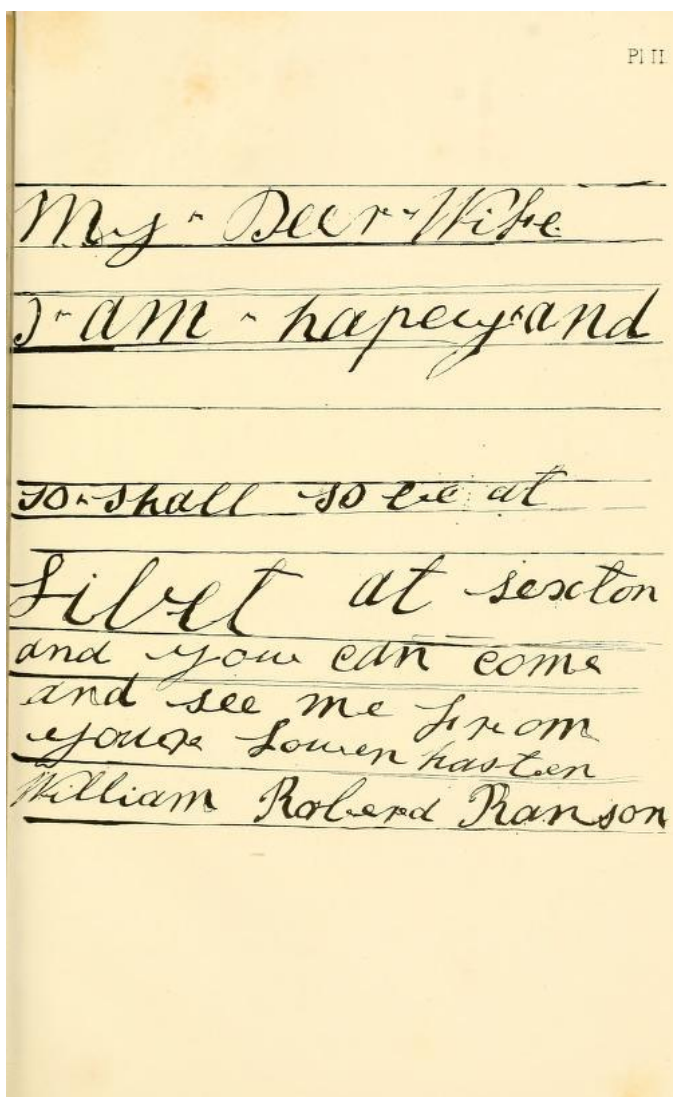 Pl II
My " Deer " Wife
I " am " hapey " and
so " shall so be at
Libet at sexton
and you can come
and see me from
youre Louen hasten
William Roberd Ranson